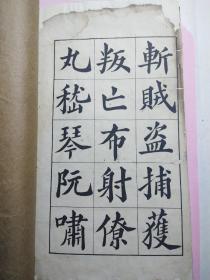 斬賊盗捕獲
叛亡布射僚
丸嵇琴阮嘯